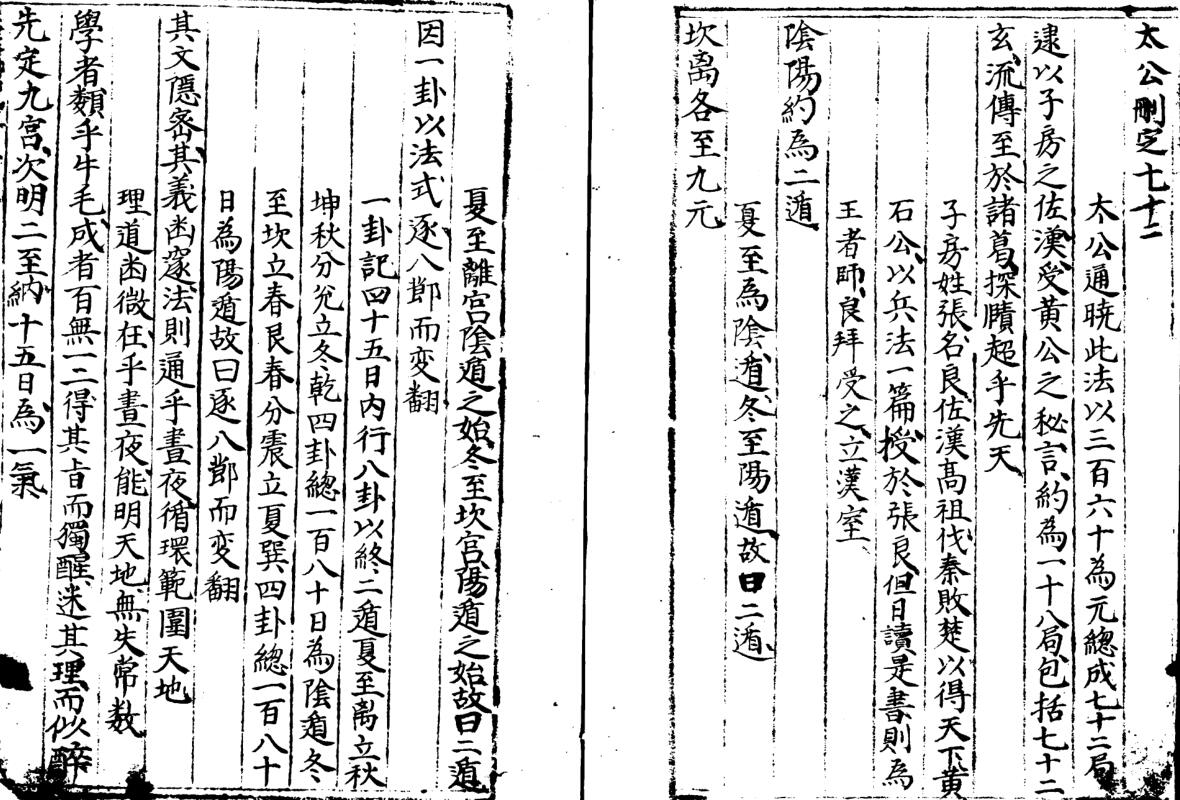 太公刪定七十二
太公通曉此法以三百六十為元總成七十二局
逮以子房之佐漢受黃公之秘言約為一十八局包括七十二
玄流傳至於諸葛探賾超乎先天
子房姓張名良佐漢高祖伐秦敗楚以得天下黃
石公以兵法一篇授於張良但日讀是書則為
王者師良拜受之立漢室
陰陽約為二遁
夏至為陰遁冬至陽遁故曰二遁
坎离各至九元
夏至離宮陰遁之始冬至坎宮陽遁之始故曰二遁
因一卦以法式逐八節而变翻
一卦記四十五日内行八卦以終二遁夏至离立秋
坤秋分兊立冬乾四卦總一百八十日為陰遁冬
至坎立春艮春分震立夏巽四卦總一百八十
日為陽遁故曰逐八節而变翻
其文隱宻其義幽邃法則通乎晝夜循環範圍天地
理道幽微在乎晝夜能明天地無失常数
學者類乎牛毛成者百無一二得其旨而獨醒迷其理而似醉
先定九宮次明二至納十五日為一氣